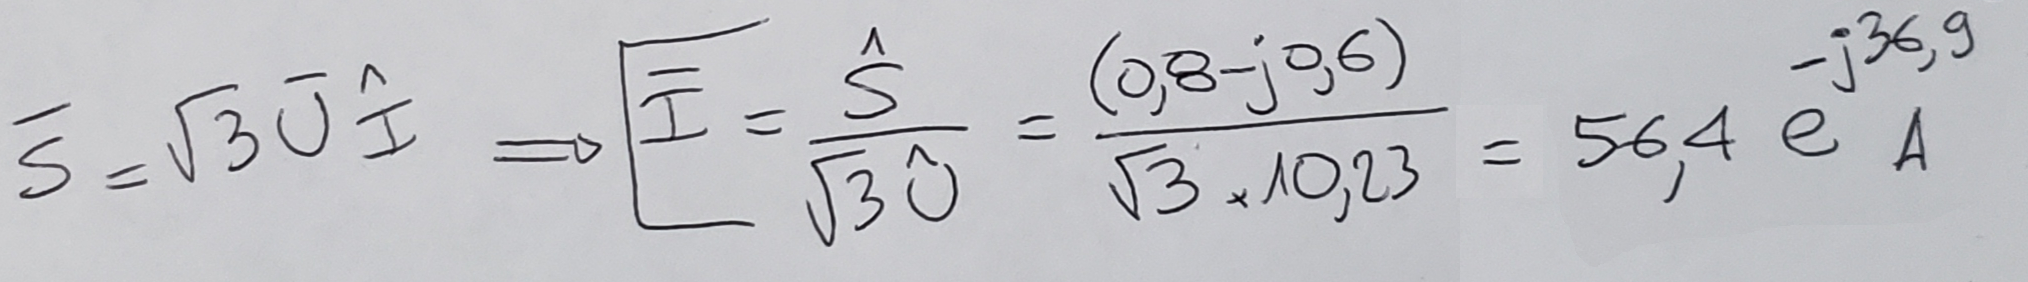 S̄ = √3 Ū Î ⟹ [Ī = Ŝ / (√3 Û) = (0,8-j0,6) / (√3 . 10,23) = 56,4 e^(-j36,9) A